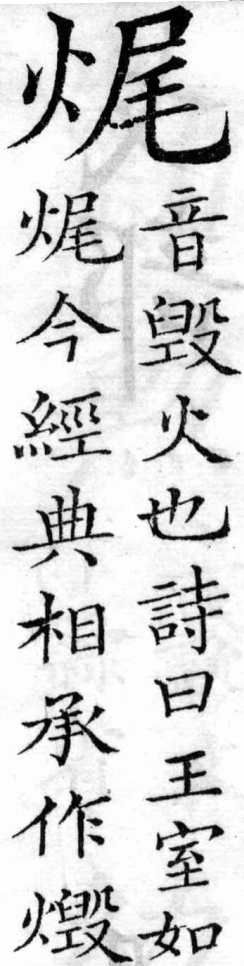 㷄
音毀火也詩曰王室如
㷄今經典相承作燬